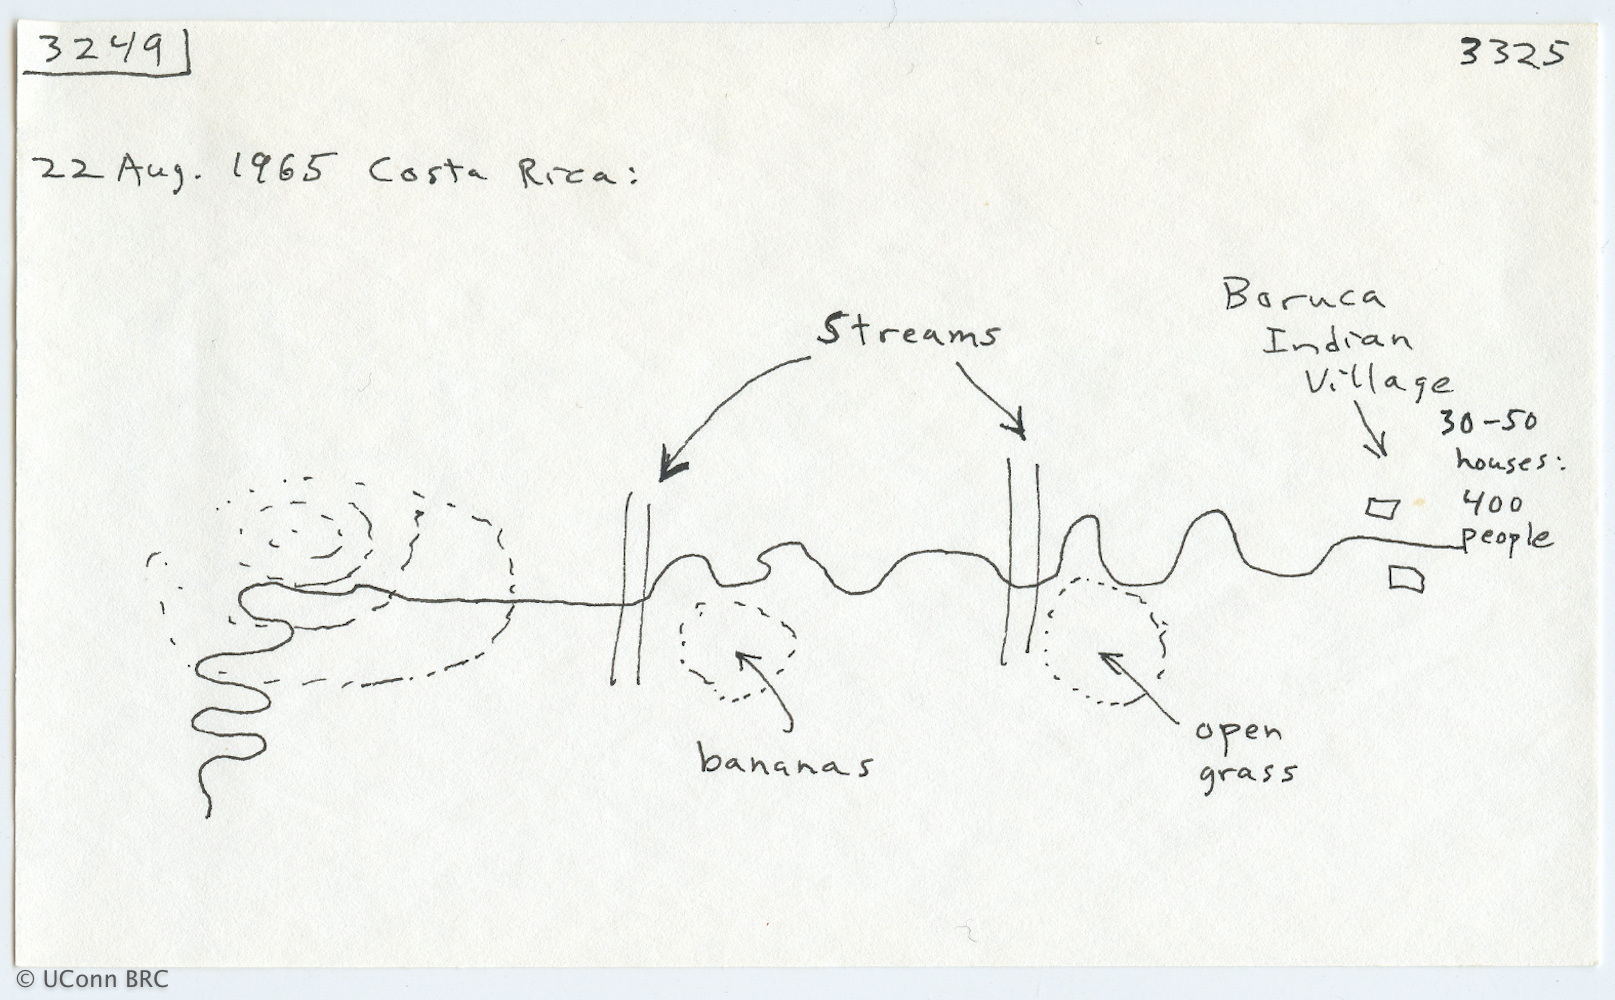 3249
3325
22 Aug. 1965 Costa Rica:
Streams
Boruca
Indian
Village
30-50
houses:
400
people
bananas
open
grass
© UConn BRC